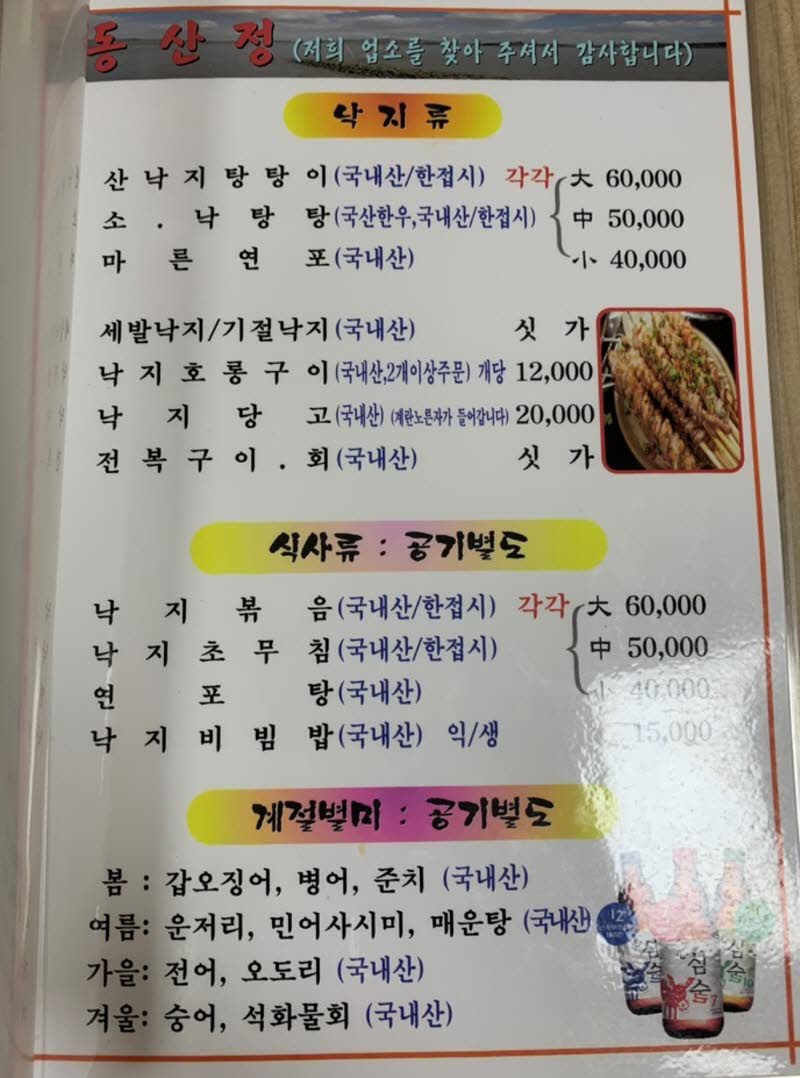 동산정 (저희 업소를 찾아 주셔서 감사합니다)
낙지류
산낙지탕탕이(국내산/한접시) 각각 大 60,000
소.낙탕탕(국산한우,국내산/한접시) 中 50,000
마른연포(국내산) 小 40,000
세발낙지/기절낙지(국내산) 싯가
낙지호롱구이(국내산,2개이상주문) 개당 12,000
낙지당고(국내산) (계란노른자가 들어갑니다) 20,000
전복구이.회(국내산) 싯가
식사류 : 공기별도
낙지볶음(국내산/한접시) 각각 大 60,000
낙지초무침(국내산/한접시) 中 50,000
연포탕(국내산) 小 40,000
낙지비빔밥(국내산) 익/생 15,000
계절별미 : 공기별도
봄 : 갑오징어, 병어, 준치 (국내산)
여름: 운저리, 민어사시미, 매운탕 (국내산)
가을: 전어, 오도리 (국내산)
겨울: 숭어, 석화물회 (국내산)
12
심술 7
심술 10